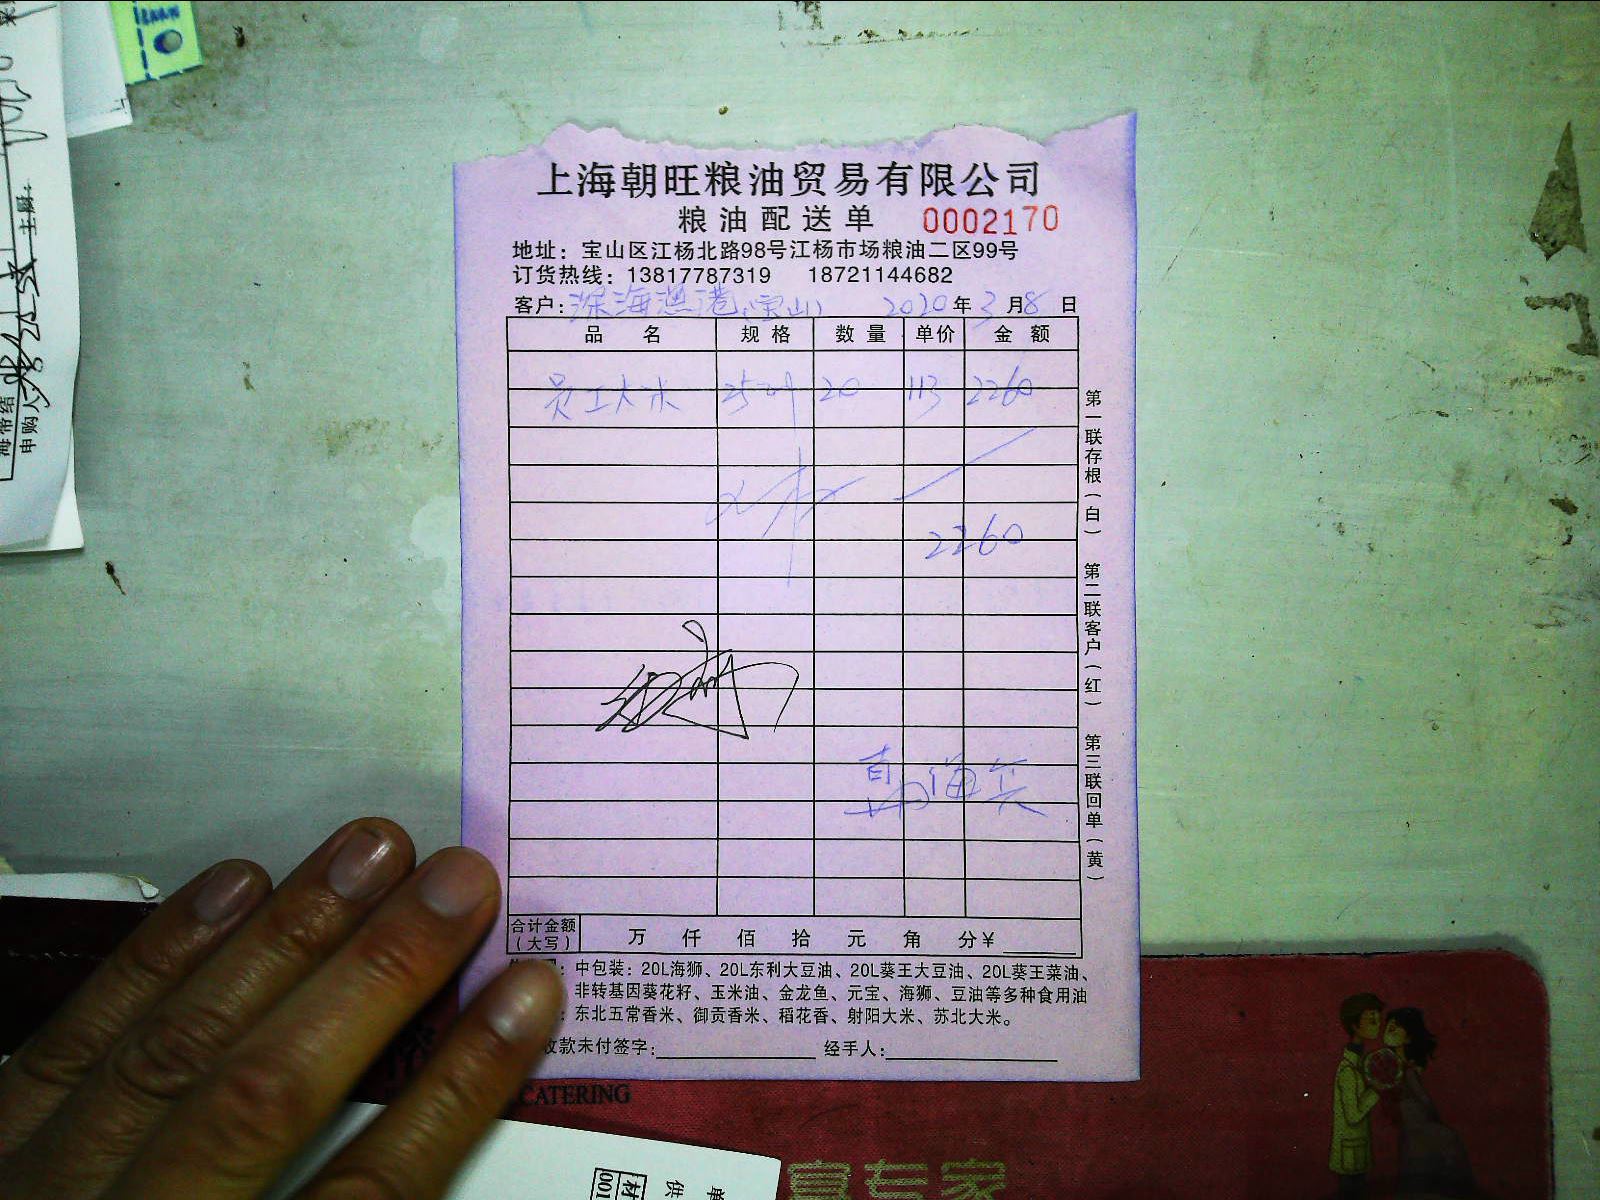 上海朝旺粮油贸易有限公司
粮油配送单 0002170
地址：宝山区江杨北路98号江杨市场粮油二区99号
订货热线：13817787319 18721144682
客户：深海渔港（宝山） 2020年3月8日
品名 规格 数量 单价 金额
员工大米 25 20 113 2260
2260
韩海兵
第一联存根（白） 第二联客户（红） 第三联回单（黄）
合计金额（大写） 万 仟 佰 拾 元 角 分¥
：中包装：20L海狮、20L东利大豆油、20L葵王大豆油、20L葵王菜油、
非转基因葵花籽、玉米油、金龙鱼、元宝、海狮、豆油等多种食用油
：东北五常香米、御贡香米、稻花香、射阳大米、苏北大米。
收款未付签字： 经手人：
CATERING
宴专家
申购人
主厨
海带结
单
供
材
001